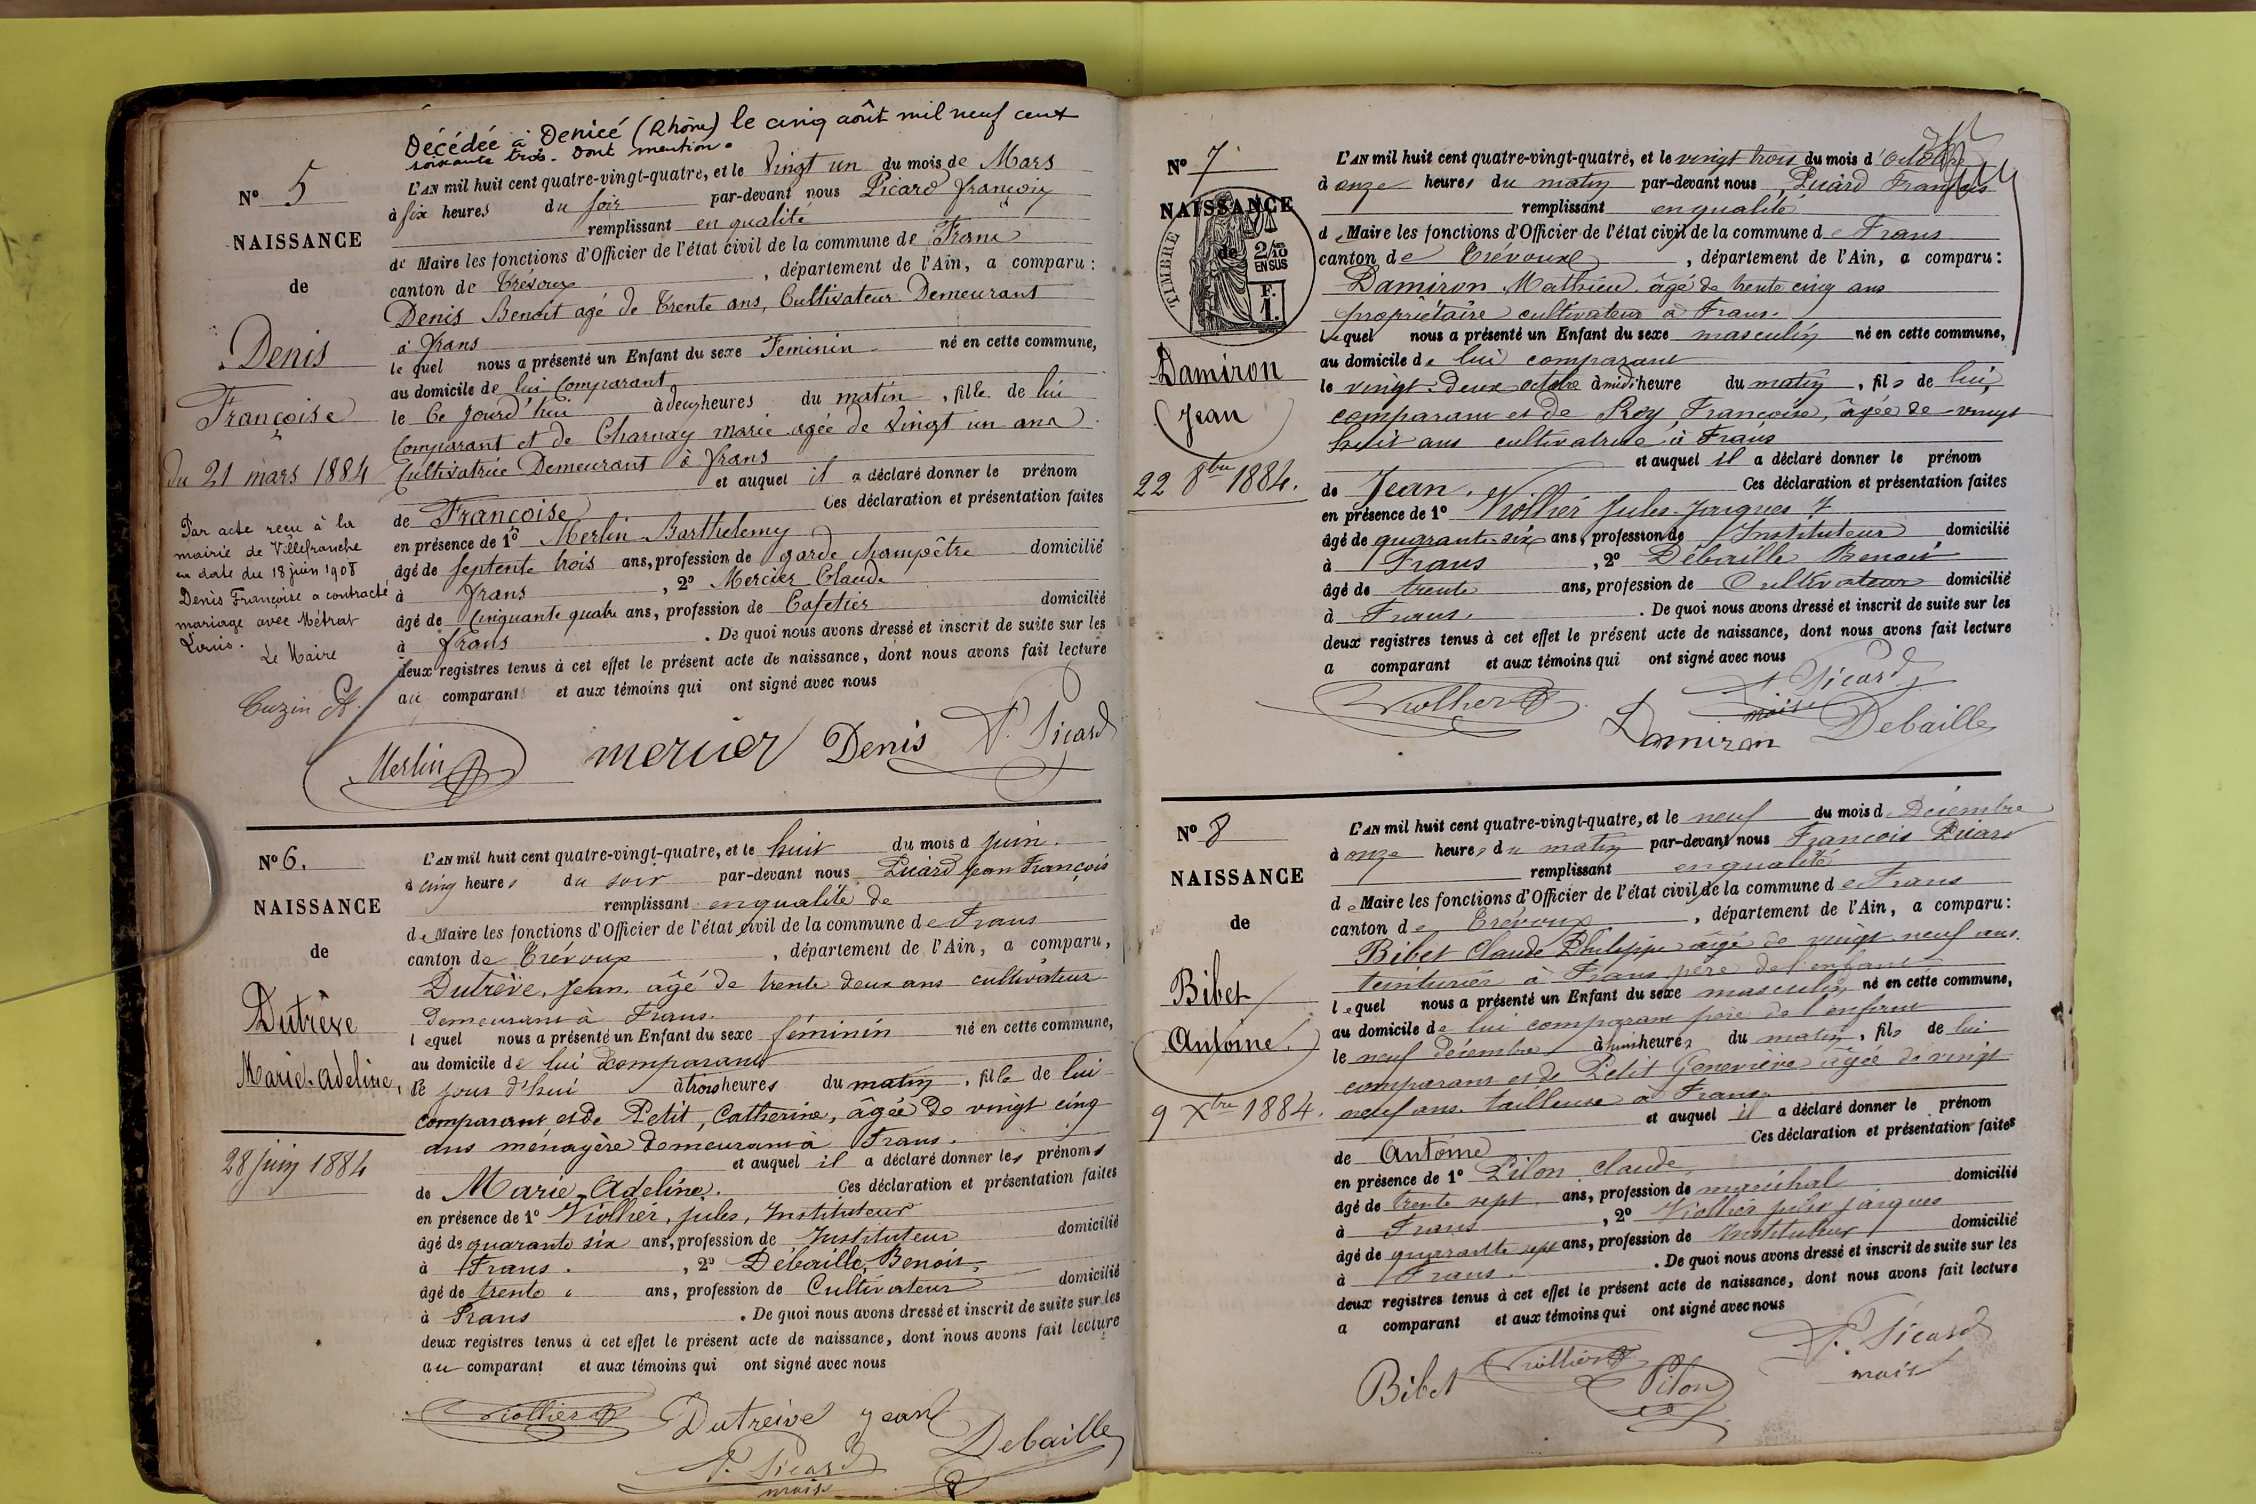 Décédée à Denicé (Rhône) le cinq août mil neuf cent
soixante trois. Dont mention.
N° 5
NAISSANCE
de
Denis
Françoise
du 21 mars 1884
Par acte reçu à la
mairie de Villefranche
en date du 18 juin 1908
Denis Françoise a contracté
mariage avec Métrat
Louis.
Le Maire
Cuzin
L'AN mil huit cent quatre-vingt-quatre, et le Vingt un du mois de Mars
à six heures du soir par-devant nous Picard françois
remplissant en qualité
de Maire les fonctions d'Officier de l'état civil de la commune de Frans
canton de Trévoux, département de l'Ain, a comparu:
Denis Benoit agé de Trente ans, Cultivateur Demeurant
à frans
le quel nous a présenté un Enfant du sexe Feminin né en cette commune,
au domicile de lui Comparant
le Ce jourd'hui à deux heures du matin, fille de lui
Comparant et de Charnay Marie agée de Vingt un ans
Cultivatrice Demeurant à frans
et auquel il a déclaré donner le prénom
de Françoise Ces déclaration et présentation faites
en présence de 1° Merlin Barthelemy
âgé de septente trois ans, profession de garde champêtre domicilié
à frans, 2° Mercier Claude
âgé de Cinquante quatre ans, profession de Cafetier domicilié
à frans. De quoi nous avons dressé et inscrit de suite sur les
deux registres tenus à cet effet le présent acte de naissance, dont nous avons fait lecture
au comparant et aux témoins qui ont signé avec nous
Merlin mercier Denis P. Picard
N° 6.
NAISSANCE
de
Dutrève
Marie-Adeline,
28 juin 1884
L'AN mil huit cent quatre-vingt-quatre, et le huit du mois d juin.
à cinq heures du soir par-devant nous Picard Jean François
remplissant en qualité de
de Maire les fonctions d'Officier de l'état civil de la commune de Frans
canton de Trévoux, département de l'Ain, a comparu,
Dutrève, Jean, âgé de trente deux ans cultivateur
demeurant à Frans.
lequel nous a présenté un Enfant du sexe féminin né en cette commune,
au domicile de lui comparant
le jour d'hui à trois heures du matin, fille de lui
comparant et de Petit, Catherine, âgée de vingt cinq
ans ménagère demeurant à Frans.
et auquel il a déclaré donner les prénoms
de Marie-Adeline. Ces déclaration et présentation faites
en présence de 1° Viollier, Jules, Instituteur
âgé de quarante six ans, profession de Instituteur domicilié
à Frans., 2° Débaille, Benoit,
âgé de trente ans, profession de Cultivateur domicilié
à Frans. De quoi nous avons dressé et inscrit de suite sur les
deux registres tenus à cet effet le présent acte de naissance, dont nous avons fait lecture
au comparant et aux témoins qui ont signé avec nous
Viollier Dutreive Jean
P. Picard Debaille
maire
N° 7
NAISSANCE
de
TIMBRE
2/10
EN SUS
F.
1.
Damiron
Jean
22 8bre 1884.
L'AN mil huit cent quatre-vingt-quatre, et le vingt trois du mois d'Octobre
à onze heures du matin par-devant nous, Picard François
remplissant en qualité
de Maire les fonctions d'Officier de l'état civil de la commune de Frans
canton de Trévoux, département de l'Ain, a comparu:
Damiron Mathieu âgé de trente cinq ans
propriétaire cultivateur à Frans.
lequel nous a présenté un Enfant du sexe masculin né en cette commune,
au domicile de lui comparant
le vingt-deux octobre à midi heure du matin, fils de lui,
comparant et de Roy, Françoise, âgée de vingt
huit ans cultivatrice à Frans
et auquel il a déclaré donner le prénom
de Jean. Ces déclaration et présentation faites
en présence de 1° Viollier Jules Jacques
âgé de quarante-six ans, profession de Instituteur domicilié
à Frans, 2° Débaille Benoit
âgé de trente ans, profession de Cultivateur domicilié
à Frans. De quoi nous avons dressé et inscrit de suite sur les
deux registres tenus à cet effet le présent acte de naissance, dont nous avons fait lecture
a comparant et aux témoins qui ont signé avec nous
Viollier P. Picard
maire
Damiron Debaille
N° 8
NAISSANCE
de
Bibet
Antoine
9 Xbre 1884.
L'AN mil huit cent quatre-vingt-quatre, et le neuf du mois d Décembre
à onze heures du matin par-devant nous François Picard
remplissant en qualité
de Maire les fonctions d'Officier de l'état civil de la commune de Frans
canton de Trévoux, département de l'Ain, a comparu:
Bibet Claude Philippe âgé de vingt neuf ans.
teinturier à Frans père de l'enfant
lequel nous a présenté un Enfant du sexe masculin né en cette commune,
au domicile de lui comparant père de l'enfant
le neuf décembre à heures du matin, fils de lui
comparant et de Petit Geneviève âgée de vingt
neuf ans. tailleuse à Frans.
et auquel il a déclaré donner le prénom
de Antoine Ces déclaration et présentation faites
en présence de 1° Pilon Claude
âgé de trente sept ans, profession de maréchal domicilié
à Frans, 2° Viollier Jules Jacques
âgé de quarante sept ans, profession de Instituteur domicilié
à Frans. De quoi nous avons dressé et inscrit de suite sur les
deux registres tenus à cet effet le présent acte de naissance, dont nous avons fait lecture
a comparant et aux témoins qui ont signé avec nous
Bibet Viollier Pilon P. Picard
maire